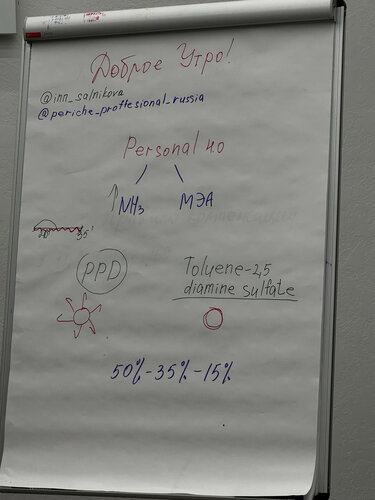 Доброе Утро!
@inn_salnikova
@periche_proffesional_russia
Personal 40
↑NH3 МЭА
20' 35'
PPD
Toluene-2,5
diamine sulfate
50%-35%-15%